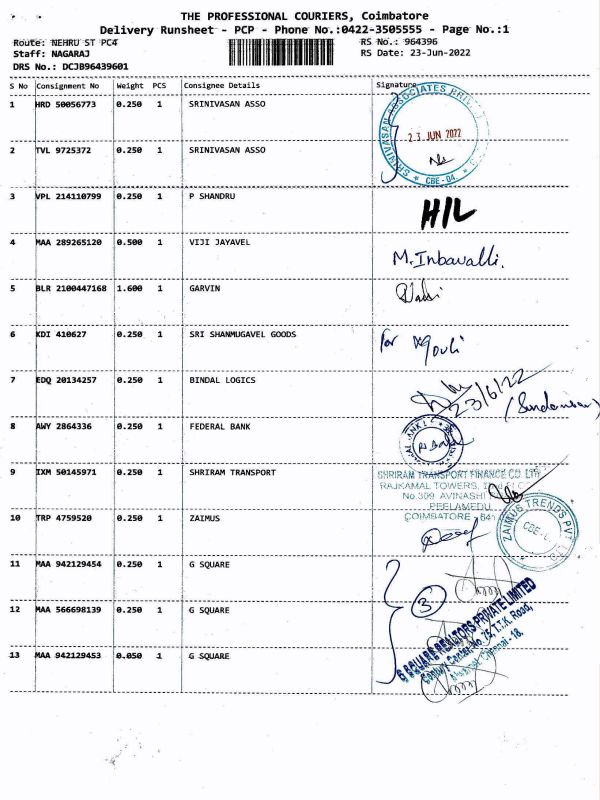 THE PROFESSIONAL COURIERS, Coimbatore
Delivery Runsheet - PCP - Phone No.:0422-3505555 - Page No.:1
Route: NEHRU ST PC4 RS No.: 964396
Staff: NAGARAJ RS Date: 23-Jun-2022
DRS No.: DCJB96439601
S No Consignment No Weight PCS Consignee Details Signature
1 HRD 50056773 0.250 1 SRINIVASAN ASSO
SRINIVASAN ASSOCIATES
23 JUN 2022
CBE-04.
2 TVL 9725372 0.250 1 SRINIVASAN ASSO
3 VPL 214110799 0.250 1 P SHANDRU H/L
4 MAA 289265120 0.500 1 VIJI JAYAVEL M.Inbavalli.
5 BLR 2100447168 1.600 1 GARVIN
6 KDI 410627 0.250 1 SRI SHANMUGAVEL GOODS for
7 EDQ 20134257 0.250 1 BINDAL LOGICS 23/6/22
8 AWY 2864336 0.250 1 FEDERAL BANK
9 IXM 50145971 0.250 1 SHRIRAM TRANSPORT
SHRIRAM TRANSPORT FINANCE CO LTD
RAJKAMAL TOWERS,
No.309 AVINASHI
PEELAMEDU
COIMBATORE - 641
10 TRP 4759520 0.250 1 ZAIMUS
ZAIMUS TRENDS PVT LTD
11 MAA 942129454 0.250 1 G SQUARE
3
12 MAA 566698139 0.250 1 G SQUARE
13 MAA 942129453 0.050 1 G SQUARE
G SQUARE REALTORS PRIVATE LIMITED
T.T.K. Road,
Chennai-18.